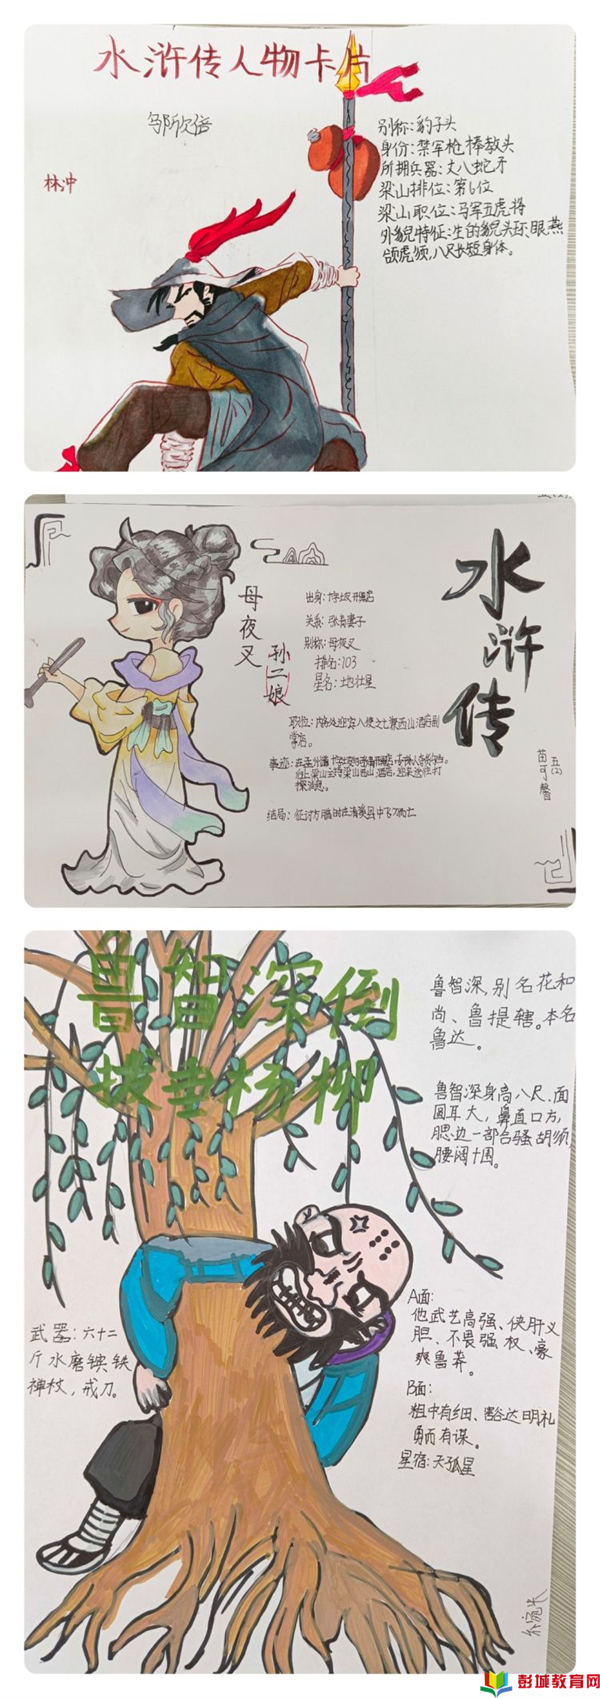 水浒传人物卡片
林冲
别称:豹子头
身份:禁军枪棒教头
所拥兵器:丈八蛇矛
梁山排位:第6位
梁山职位:马军五虎将
外貌特征:生的豹头环眼燕
颔虎须,八尺长短身体。
水浒传
母夜叉
孙二娘
出身:十字坡开黑店
关系:张青妻子
别称:母夜叉
排名:103
星名:地壮星
苗可馨
鲁智深倒
拔垂杨柳
鲁智深,别名花和
尚、鲁提辖。本名
鲁达。
鲁智深身高八尺、面
圆耳大,鼻直口方,
腮边一部 胡须,
腰阔十围。
武器:六十二
斤水磨镔铁
禅杖,戒刀。
A面:
他武艺高强、侠肝义
胆、不畏强权、豪
爽鲁莽。
B面:
粗中有细、豁达明礼
勇而有谋。
星宿:天孤星
彭城教育网